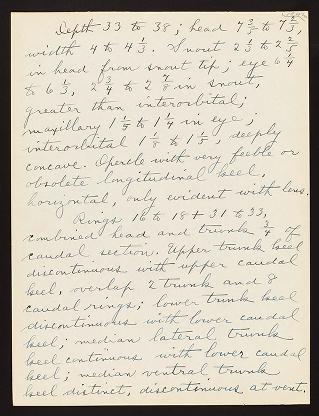 Depth 33 to 38; head 7 3/5 to 7 2/3,
width 4 to 4 1/3. Snout 2 1/3 to 2 2/5
in head from snout tip; eye 6 1/4
to 6 1/3, 2 3/4 to 2 7/8 in snout,
greater than interorbital;
maxillary 1 1/5 to 1 1/4 in eye;
interorbital 1 1/8 to 1 1/5, deeply
concave. Opercle with very feeble or
obsolete longitudinal keel,
horizontal, only evident with lens.
Rings 16 to 18 + 31 to 33,
combined head and trunk 3/4 of
caudal section. Upper trunk keel
discontinuous with upper caudal
keel, overlap 2 trunk and 8
caudal rings; lower trunk keel
discontinuous with lower caudal
keel; median lateral trunk
keel continuous with lower caudal
keel; median ventral trunk
keel distinct, discontinuous at vent.